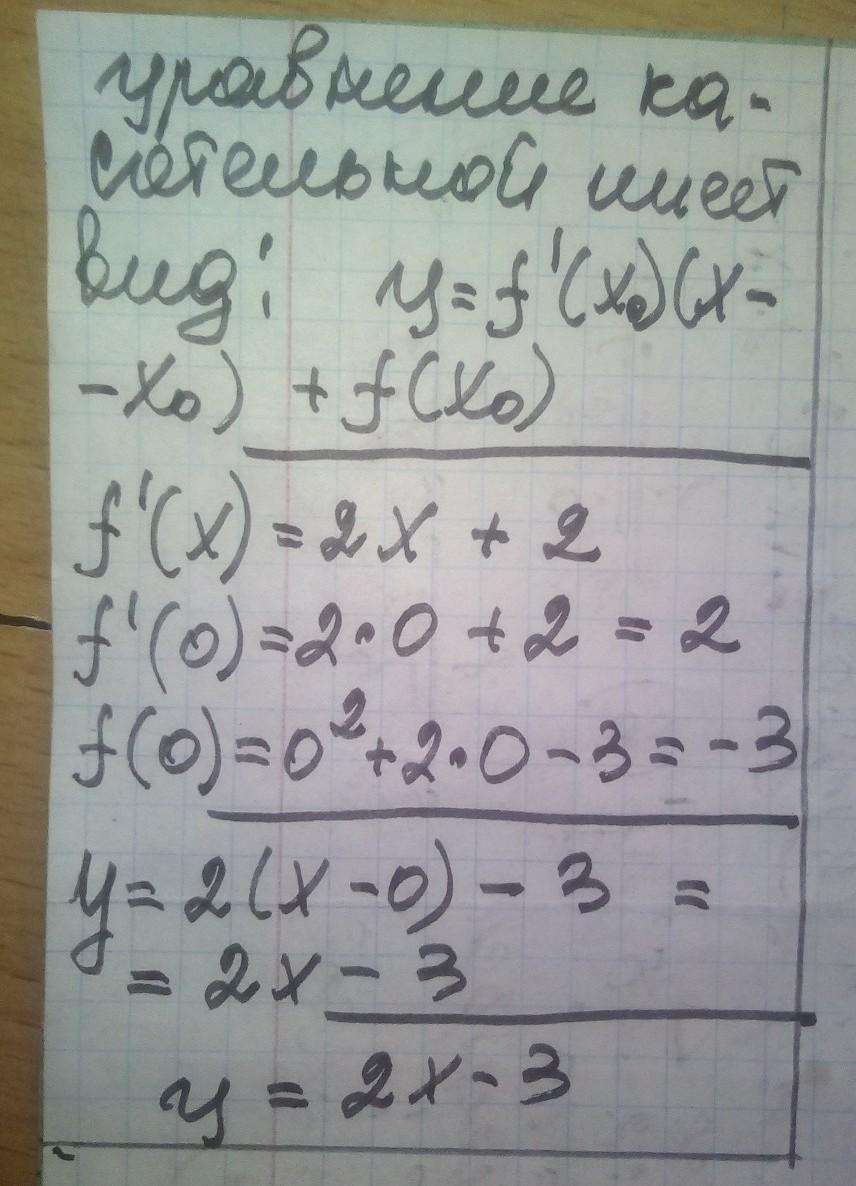 уравнение ка-
сательной имеет
вид: y=f'(x₀)(x-
-x₀) + f(x₀)
f'(x)=2x + 2
f'(0)=2·0 +2 = 2
f(0)=0²+2·0-3=-3
y=2(x-0)-3 =
= 2x-3
y = 2x-3